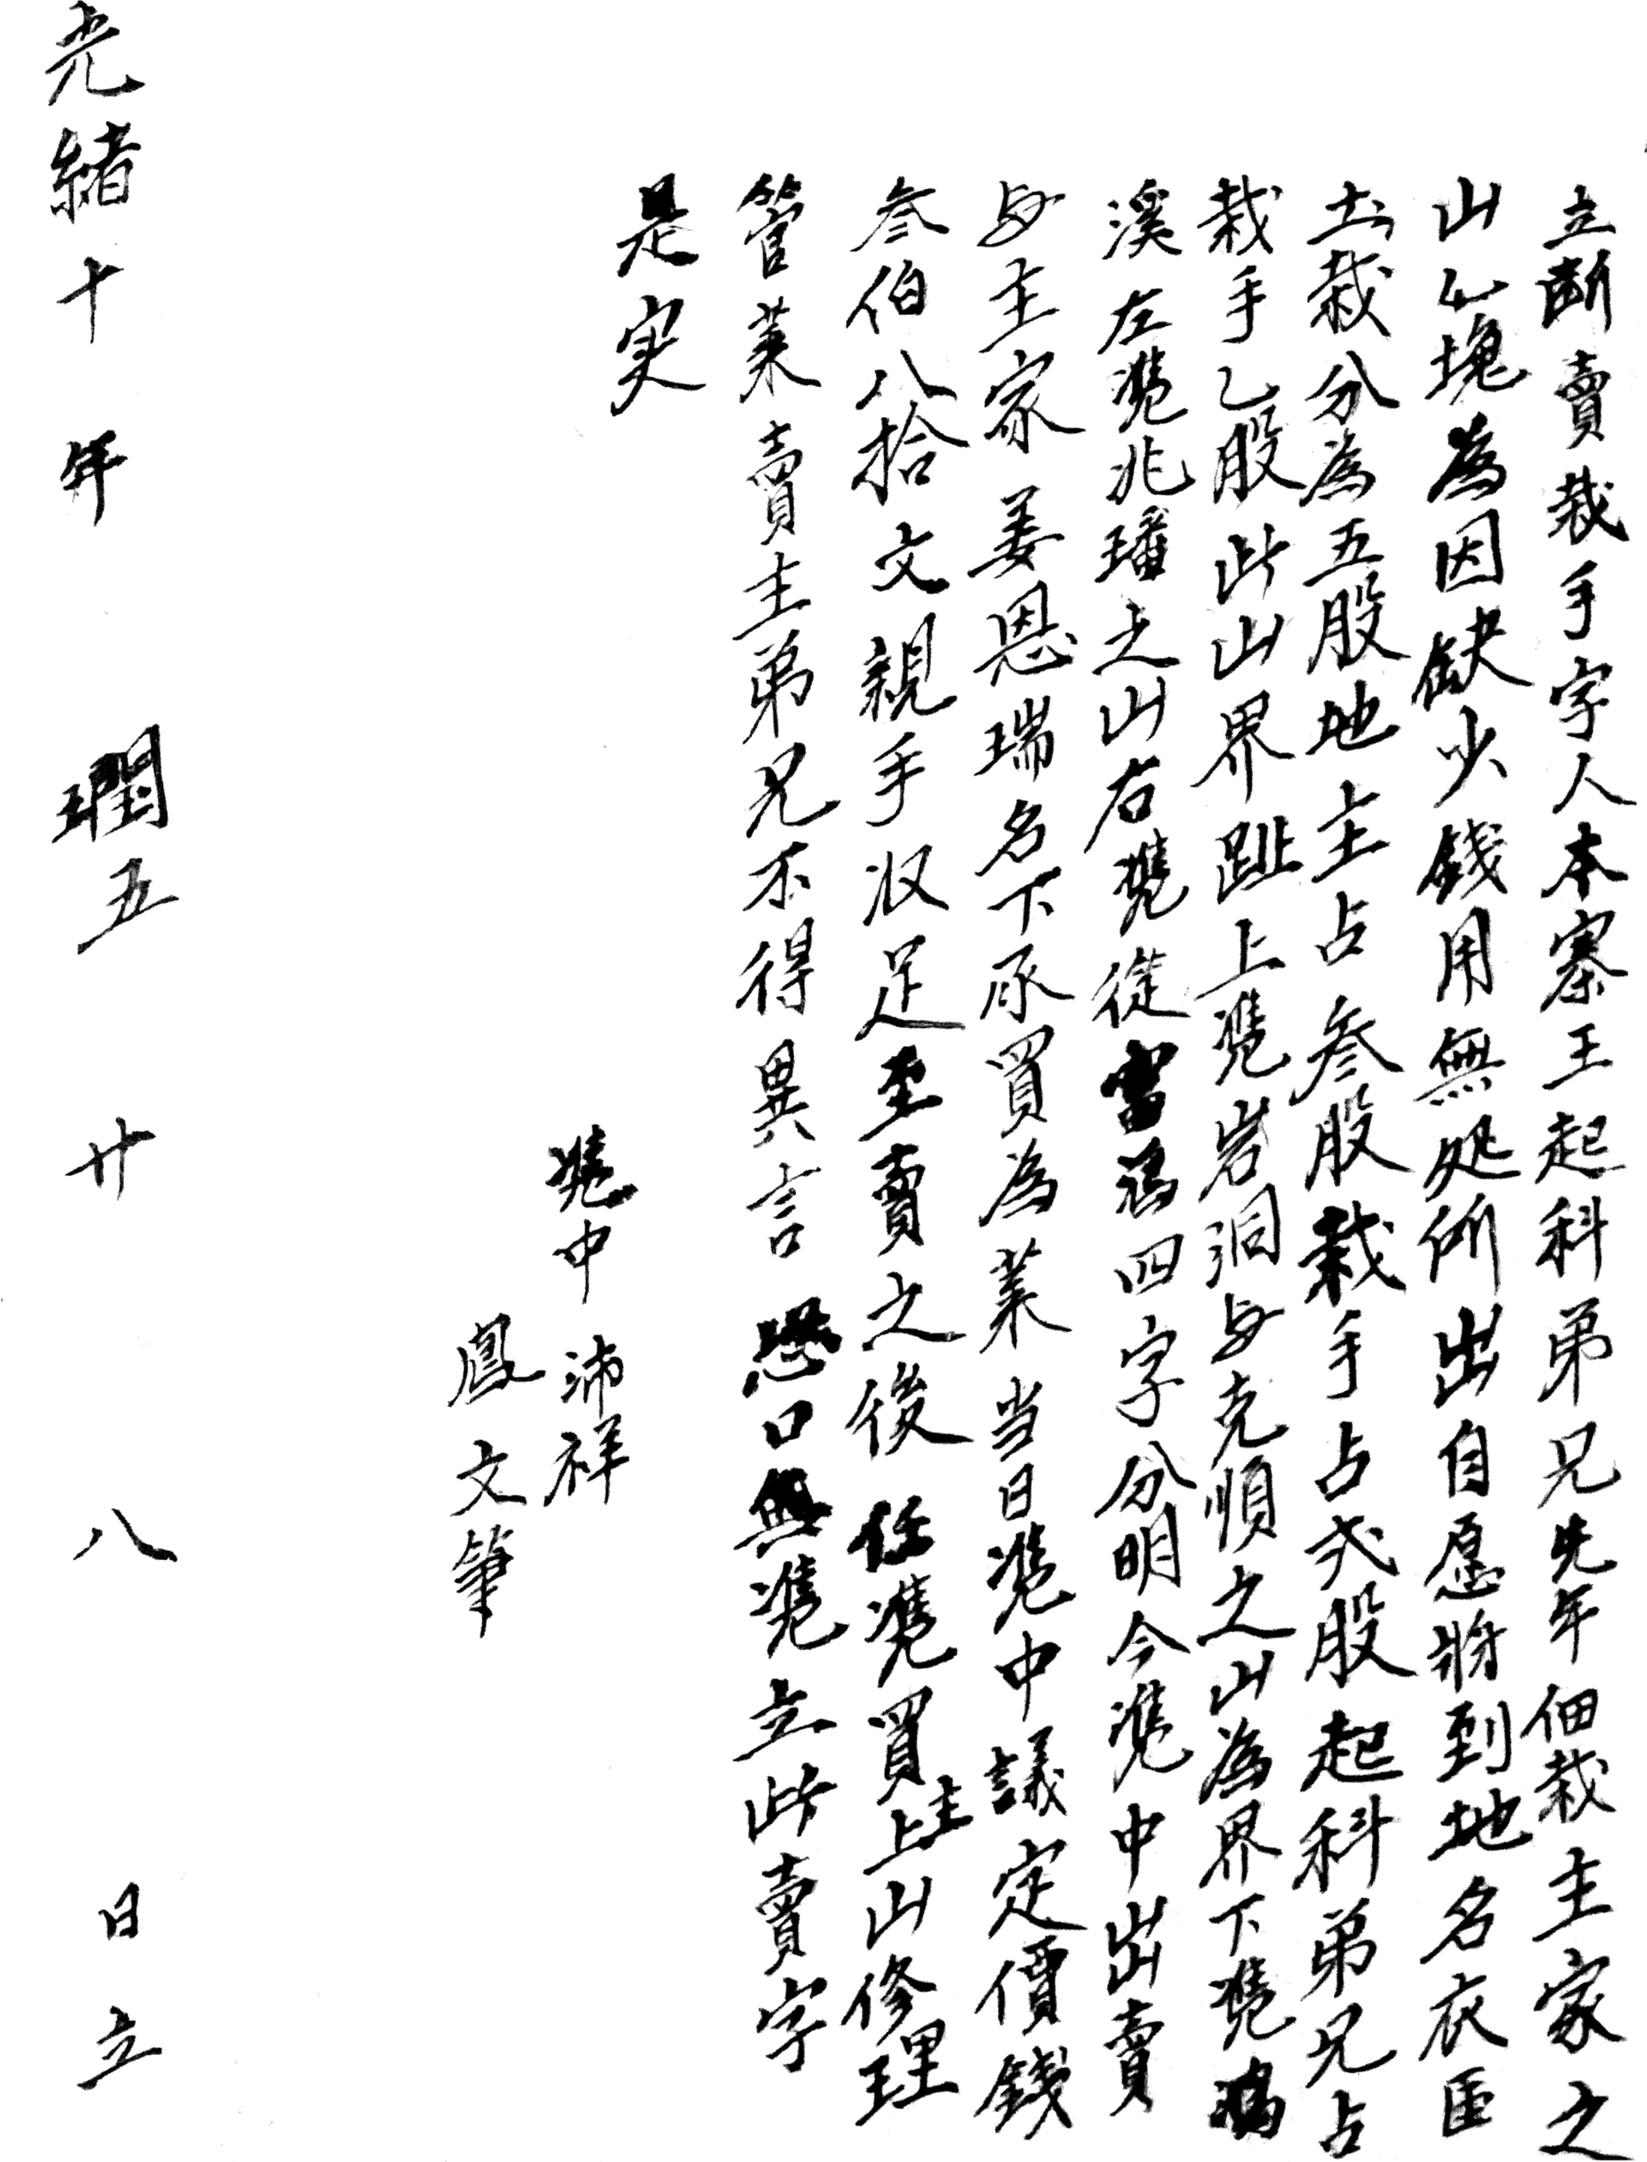 立断賣栽手字人本寨王起科弟兄先年佃栽主家之
山乙塊為因缺少錢用無処所出自愿將到地名衣臣
土栽分為五股地主占叁股栽手占弍股起科弟兄占
栽手乙股此山界趾上凴岩洞与克順之山為界下凴
溪左凴兆璠之山右凴從四字分明今凴中出賣
与主家姜恩瑞名下承買為業当日凴中議定價錢
叁伯八拾文親手収足至賣之後任凴買主上山修理
管業賣主弟兄不得異言恐口無凴立此賣字
是実
凴中沛祥
鳳文筆
光緒十年潤五廿八日立